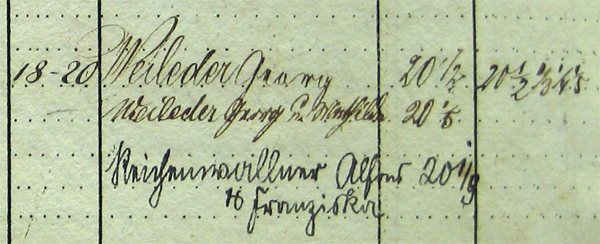 18-20 Weileder Georg 20 1/2 20 1/2 1/3 1/4 1/5
Weileder Georg u. Mathilde 20 1/5
Reichenwallner Alfons 20 1/9
" Franziska